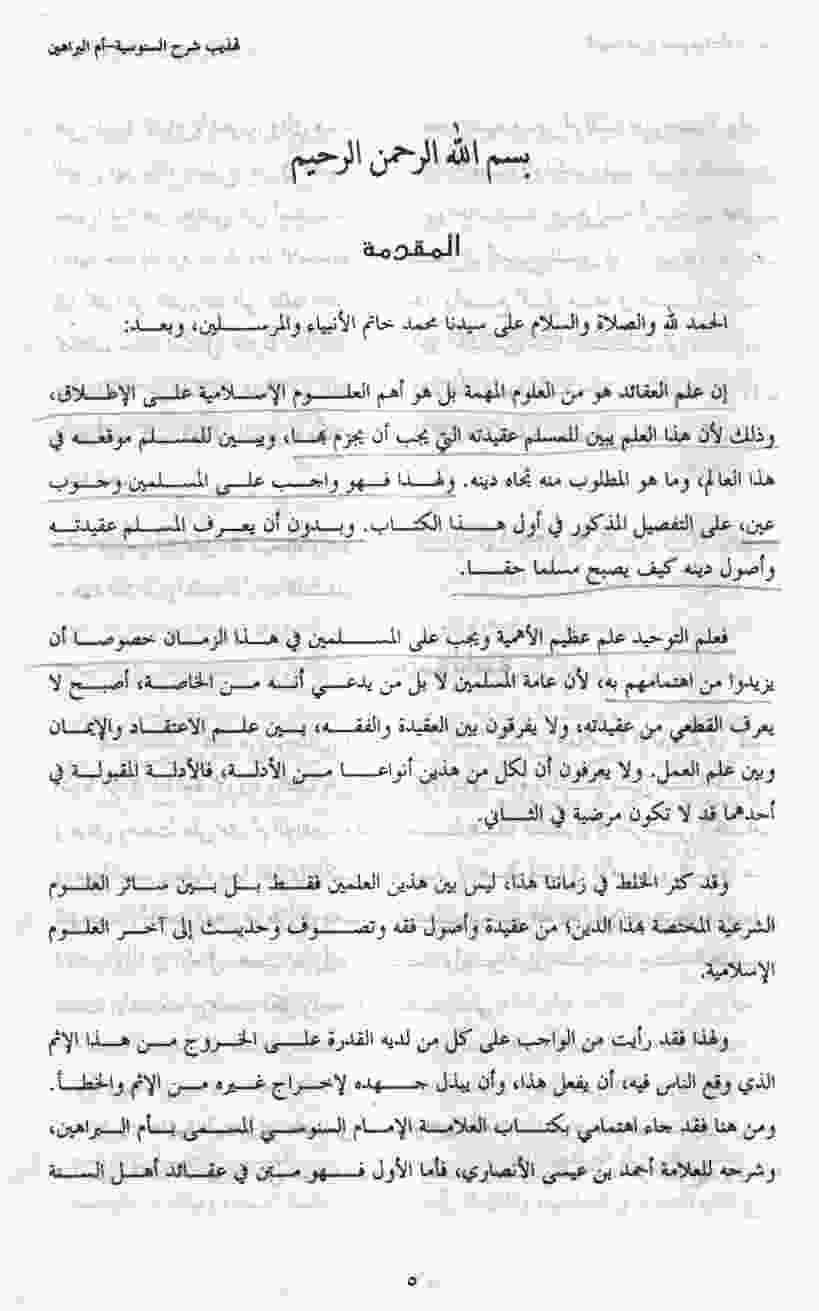 تهذيب شرح السنوسية-أم البراهين
بسم الله الرحمن الرحيم
المقدمة
الحمد لله والصلاة والسلام على سيدنا محمد خاتم الأنبياء والمرسلين، وبعد:
إن علم العقائد هو من العلوم المهمة بل هو أهم العلوم الإسلامية على الإطلاق،
وذلك لأن هذا العلم يبين للمسلم عقيدته التي يجب أن يجزم بها، ويبين للمسلم موقعه في
هذا العالم، وما هو المطلوب منه تجاه دينه. ولهذا فهو واجب على المسلمين وجوب
عين، على التفصيل المذكور في أول هذا الكتاب. وبدون أن يعرف المسلم عقيدته
وأصول دينه كيف يصبح مسلما حقا.
فعلم التوحيد علم عظيم الأهمية ويجب على المسلمين في هذا الزمان خصوصا أن
يزيدوا من اهتمامهم به، لأن عامة المسلمين لا بل من يدعي أنه من الخاصة، أصبح لا
يعرف القطعي من عقيدته، ولا يفرقون بين العقيدة والفقه، بين علم الاعتقاد والإيمان
وبين علم العمل. ولا يعرفون أن لكل من هذين أنواعا من الأدلة، فالأدلة المقبولة في
أحدهما قد لا تكون مرضية في الثاني.
وقد كثر الخلط في زماننا هذا، ليس بين هذين العلمين فقط بل بين سائر العلوم
الشرعية المختصة بهذا الدين؛ من عقيدة وأصول فقه وتصوف وحديث إلى آخر العلوم
الإسلامية.
ولهذا فقد رأيت من الواجب على كل من لديه القدرة على الخروج من هذا الإثم
الذي وقع الناس فيه، أن يفعل هذا، وأن يبذل جهده لإخراج غيره من الإثم والخطأ.
ومن هنا فقد جاء اهتمامي بكتاب العلامة الإمام السنوسي المسمى بأم البراهين،
وشرحه للعلامة أحمد بن عيسى الأنصاري، فأما الأول فهو متن في عقائد أهل السنة
٥